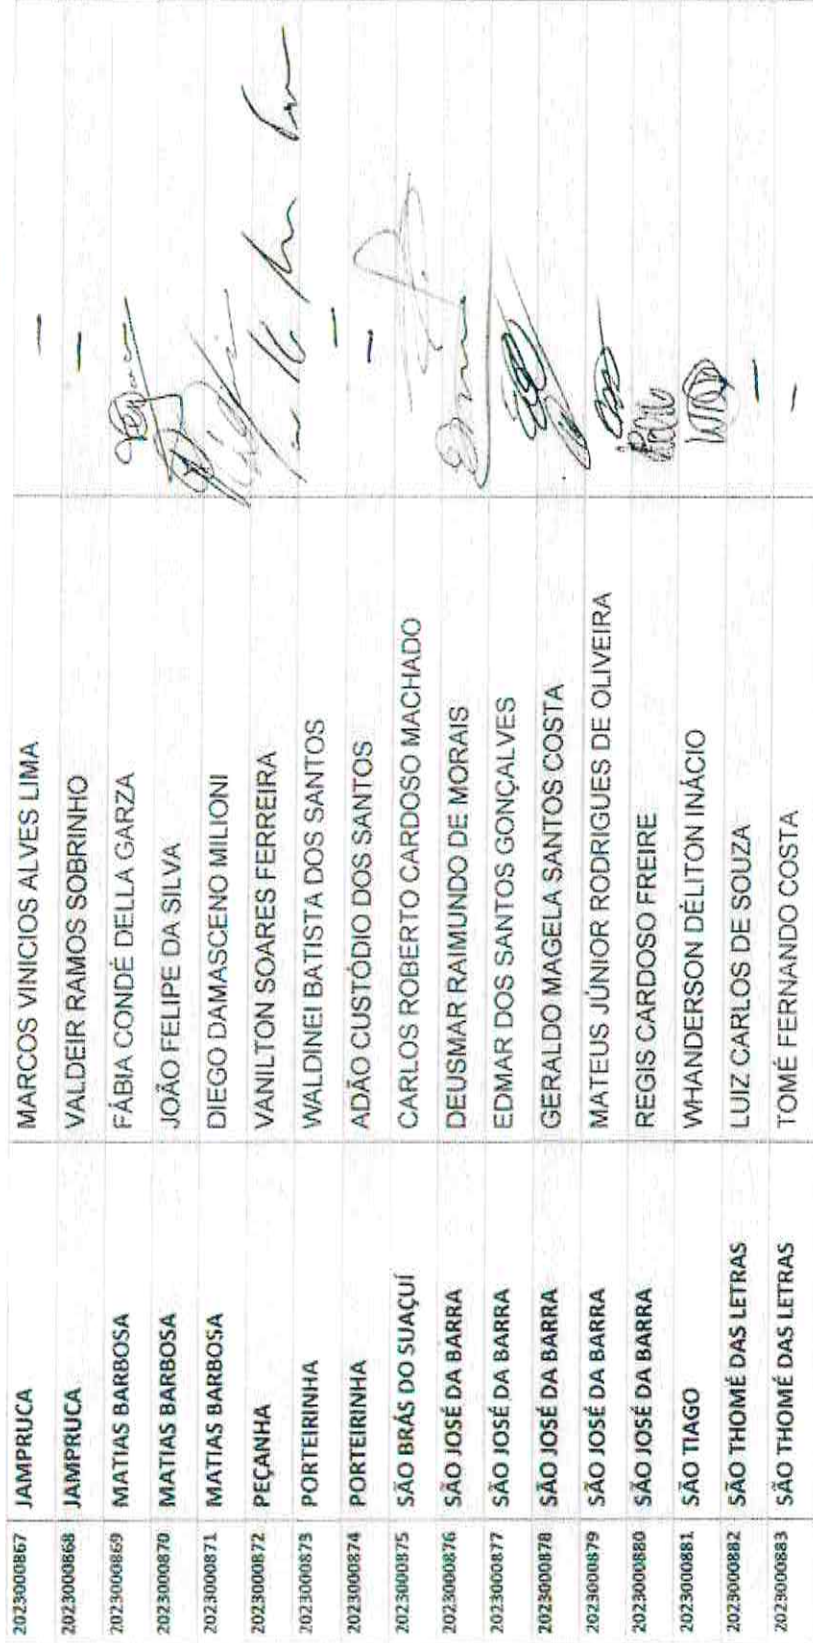 2023000867 JAMPRUCA MARCOS VINICIOS ALVES LIMA —
2023000868 JAMPRUCA VALDEIR RAMOS SOBRINHO —
2023000869 MATIAS BARBOSA FÁBIA CONDÉ DELLA GARZA
2023000870 MATIAS BARBOSA JOÃO FELIPE DA SILVA
2023000871 MATIAS BARBOSA DIEGO DAMASCENO MILIONI
2023000872 PEÇANHA VANILTON SOARES FERREIRA
2023000873 PORTEIRINHA WALDINEI BATISTA DOS SANTOS —
2023000874 PORTEIRINHA ADÃO CUSTÓDIO DOS SANTOS —
2023000875 SÃO BRÁS DO SUAÇUÍ CARLOS ROBERTO CARDOSO MACHADO
2023000876 SÃO JOSÉ DA BARRA DEUSMAR RAIMUNDO DE MORAIS
2023000877 SÃO JOSÉ DA BARRA EDMAR DOS SANTOS GONÇALVES
2023000878 SÃO JOSÉ DA BARRA GERALDO MAGELA SANTOS COSTA
2023000879 SÃO JOSÉ DA BARRA MATEUS JÚNIOR RODRIGUES DE OLIVEIRA
2023000880 SÃO JOSÉ DA BARRA REGIS CARDOSO FREIRE
2023000881 SÃO TIAGO WHANDERSON DÉLITON INÁCIO
2023000882 SÃO THOMÉ DAS LETRAS LUIZ CARLOS DE SOUZA —
2023000883 SÃO THOMÉ DAS LETRAS TOMÉ FERNANDO COSTA —